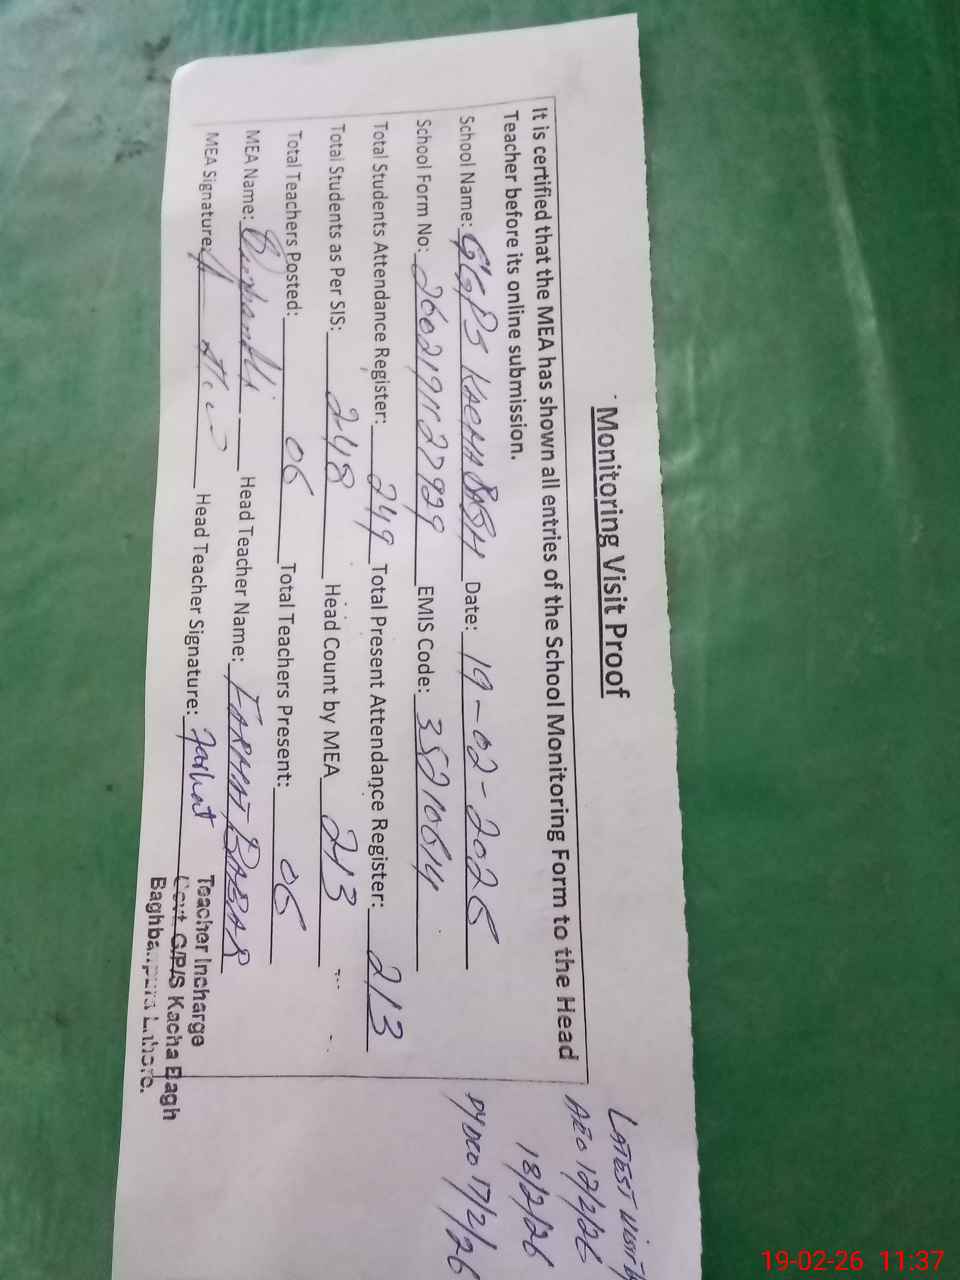 Monitoring Visit Proof
It is certified that the MEA has shown all entries of the School Monitoring Form to the Head
Teacher before its online submission.
School Name: GGPS KACHA BAGH Date: 19-02-2026
School Form No: EMIS Code: 35210614
Total Students Attendance Register: 249 Total Present Attendance Register: 213
Total Students as Per SIS: 248 Head Count by MEA 213
Total Teachers Posted: 06 Total Teachers Present: 06
MEA Name: Head Teacher Name: FARHAT BABAR
MEA Signature: Head Teacher Signature: Farhat
Teacher Incharge
Govt G/P/S Kacha Bagh
Baghbanpura Lahore.
LATEST VISIT
AEO 12/2/26
18/2/26
DYDEO 17/2/26
19-02-26 11:37